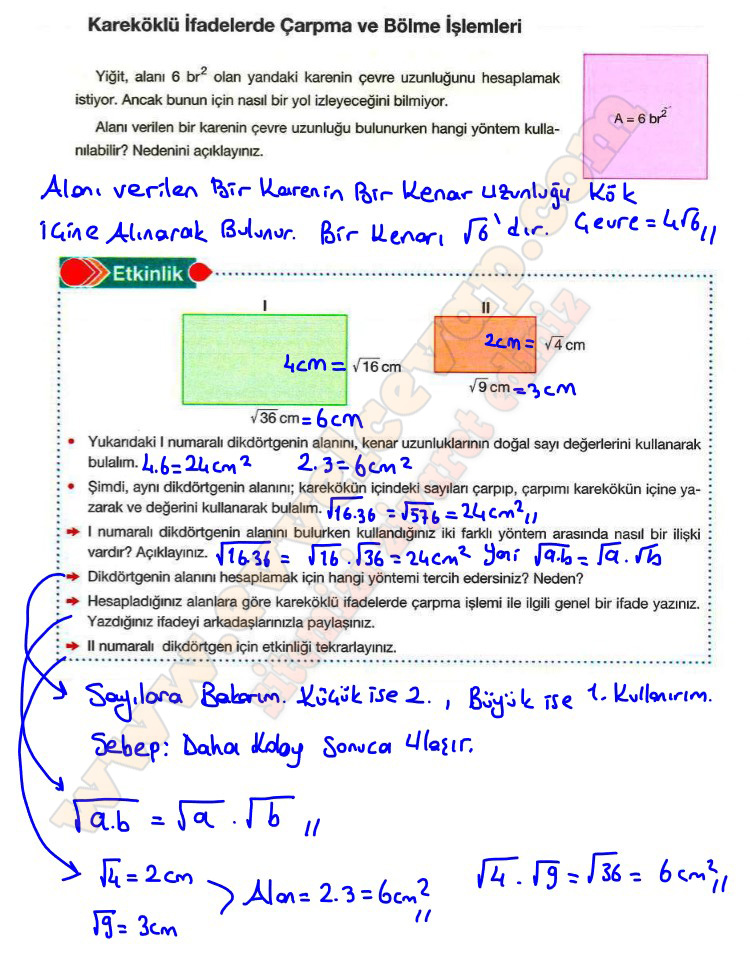 Kareköklü İfadelerde Çarpma ve Bölme İşlemleri
Yiğit, alanı 6 br² olan yandaki karenin çevre uzunluğunu hesaplamak
istiyor. Ancak bunun için nasıl bir yol izleyeceğini bilmiyor.
A = 6 br²
Alanı verilen bir karenin çevre uzunluğu bulunurken hangi yöntem kulla-
nılabilir? Nedenini açıklayınız.
Alanı verilen Bir Karenin Bir Kenar Uzunluğu Kök
içine Alınarak Bulunur. Bir Kenarı √6'dır. Çevre=4√6//
Etkinlik
I
II
4cm = √16 cm
2cm = √4 cm
√36 cm = 6cm
√9 cm = 3cm
• Yukarıdaki I numaralı dikdörtgenin alanını, kenar uzunluklarının doğal sayı değerlerini kullanarak
bulalım. 4.6=24cm² 2.3=6cm²
• Şimdi, aynı dikdörtgenin alanını; karekökün içindeki sayıları çarpıp, çarpımı karekökün içine ya-
zarak ve değerini kullanarak bulalım. √16.36 = √576 = 24cm²//
➔ I numaralı dikdörtgenin alanını bulurken kullandığınız iki farklı yöntem arasında nasıl bir ilişki
vardır? Açıklayınız. √16.36 = √16 . √36 = 24cm² Yani √a.b = √a . √b
➔ Dikdörtgenin alanını hesaplamak için hangi yöntemi tercih edersiniz? Neden?
➔ Hesapladığınız alanlara göre kareköklü ifadelerde çarpma işlemi ile ilgili genel bir ifade yazınız.
Yazdığınız ifadeyi arkadaşlarınızla paylaşınız.
➔ II numaralı dikdörtgen için etkinliği tekrarlayınız.
Sayılara Bakarım. Küçük ise 2. , Büyük ise 1. Kullanırım.
Sebep: Daha Kolay Sonuca Ulaşır.
√a.b = √a . √b //
√4 = 2cm
√9 = 3cm
Alan = 2.3 = 6cm²//
√4 . √9 = √36 = 6cm²//
www.evvelcevap.com
sitemizi ziyaret ediniz